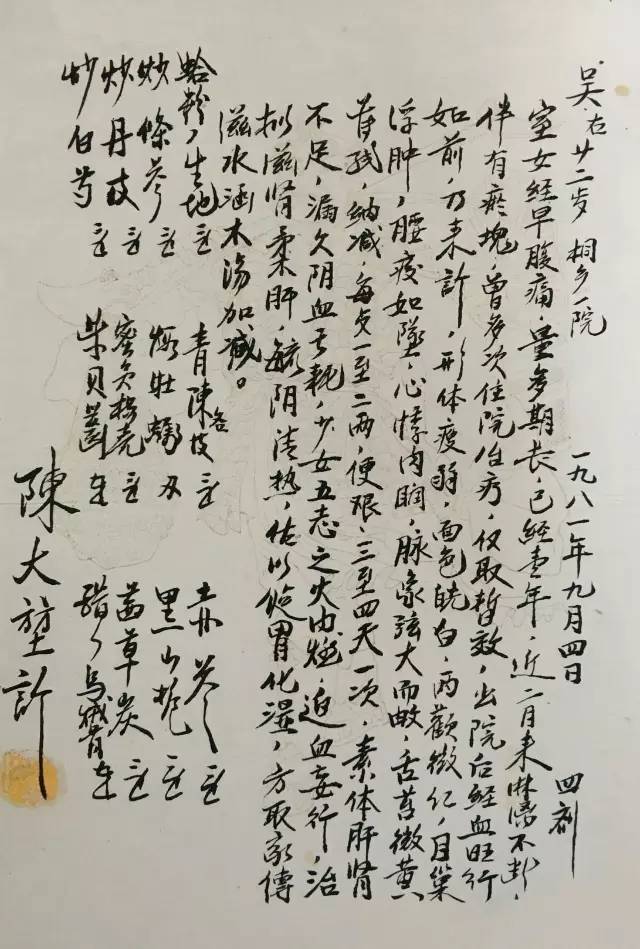 吴右 廿二岁 桐乡一院 一九八一年九月四日 四剂
室女经早腹痛，量多期长，已经壹年，近二月来淋漓不断，
伴有瘀块，曾多次住院治疗，仅取暂效，出院后经血旺行
如前，乃来诊，形体疲弱，面色㿠白，两颧微红，目窠
浮肿，腰痠如坠，心悸内，脉象弦大而，舌苔微黄
，纳减，每餐一至二两，便艰，三至四天一次，素体肝肾
不足，漏久阴血亏耗，少女五志之火内燃，迫血妄行，治
拟滋肾柔肝，毓阴清热，佐以胃化湿，方取家传
滋水涵木汤加减。
蛤粉炒生地 青陈各 赤芩
炒条参 煅牡蛎 黑山栀
炒丹皮 蜜炙壳 茜草炭
炒白芍 紫贝齿 乌贼骨
陈大堃诊